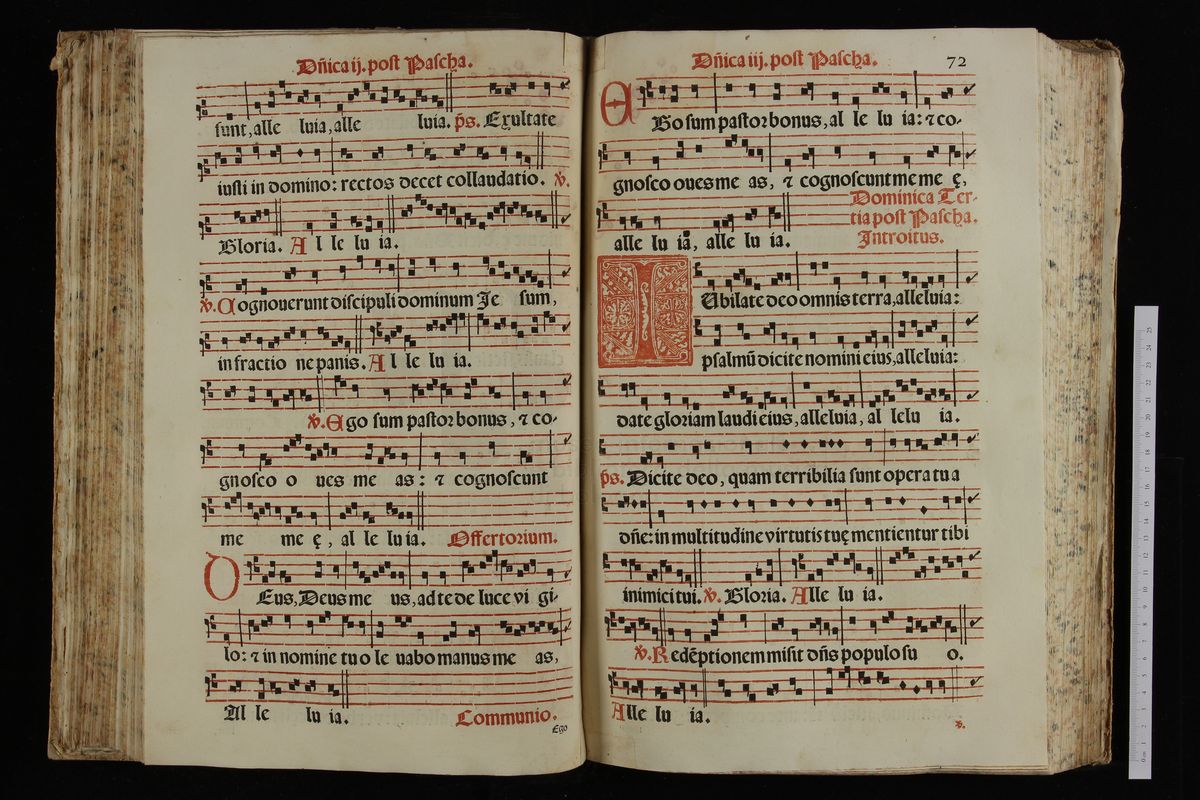 Dñica ij. post Pascha.
sunt, alle luia, alle luia. p̄s. Exultate
iusti in domino: rectos decet collaudatio. ℣.
Gloria. A l le lu ia.
℣. Cognouerunt discipuli dominum Je sum,
in fractio ne panis. A l le lu ia.
℣. Ego sum pastor bonus, ⁊ co-
gnosco o ues me as: ⁊ cognoscunt
me me ę, al le lu ia. Offertorium.
DEus, Deus me us, ad te de luce vi gi-
lo: ⁊ in nomine tu o le uabo manus me as,
Al le lu ia. Communio.
Ego
Dñica iij. post Pascha. 72
EGo sum pastor bonus, al le lu ia: ⁊ co-
gnosco oues me as, ⁊ cognoscunt me me ę,
alle lu ia, alle lu ia.
Dominica Ter-
tia post Pascha.
Introitus.
IUbilate deo omnis terra, alleluia:
psalmū dicite nomini eius, alleluia:
date gloriam laudi eius, alleluia, al lelu ia.
p̄s. Dicite deo, quam terribilia sunt opera tu a
dñe: in multitudine virtutis tuę mentientur tibi
inimici tui. ℣. Gloria. Alle lu ia.
℣. Redēptionem misit dñs populo su o.
Alle lu ia.
℣.